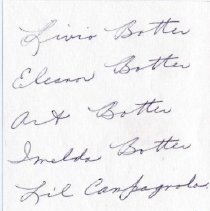 Livio Botter
Eleanor Botter
Art Botter
Imelda Botter
Lil Campagnolo